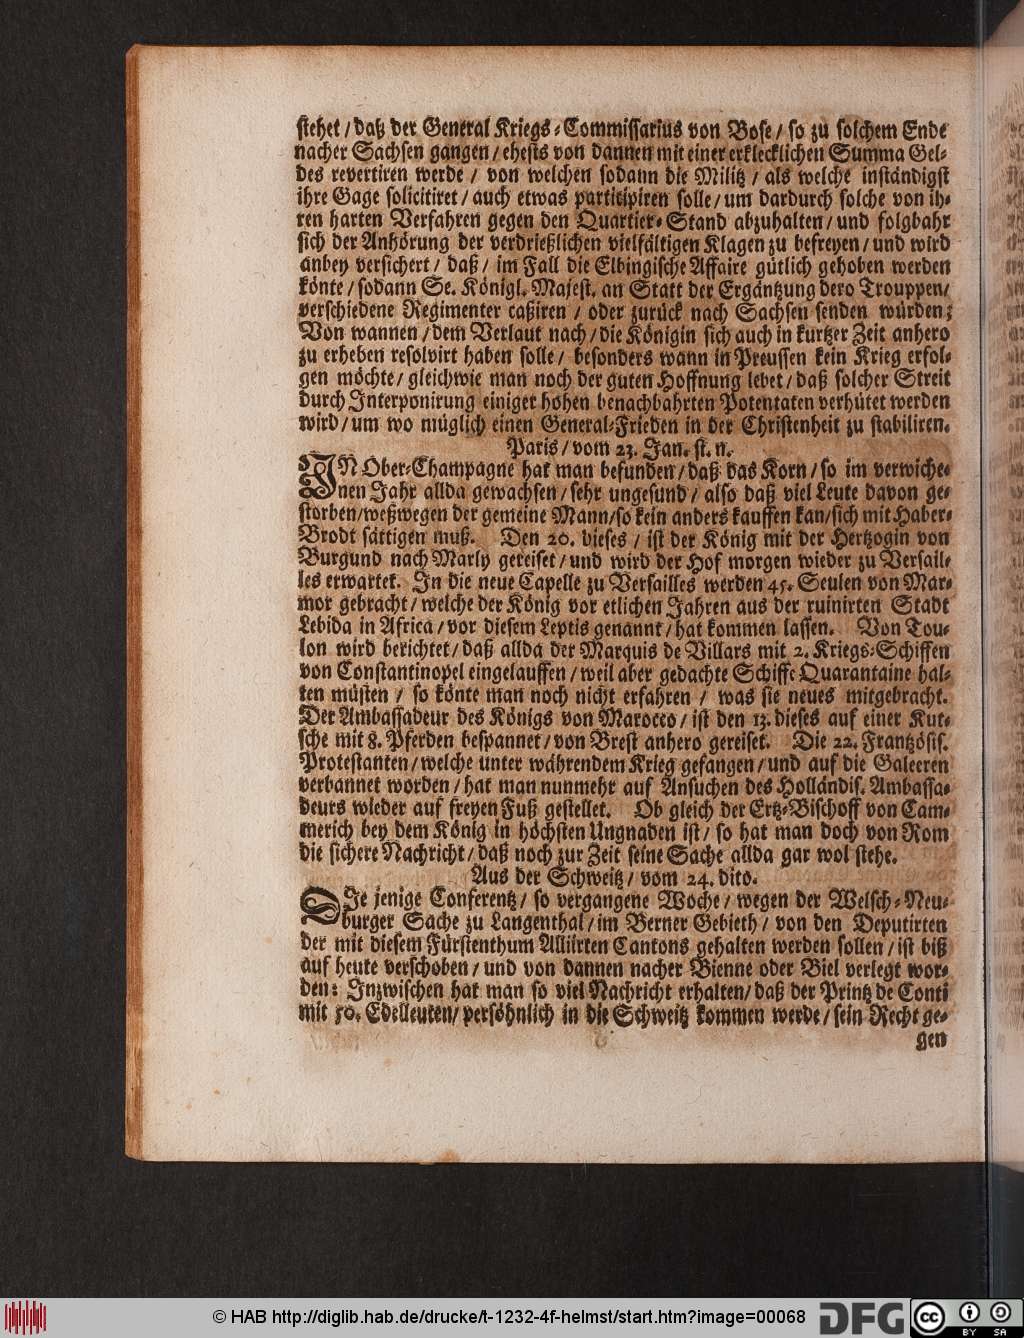 stehet / daß der General Kriegs-Commissarius von Bose / so zu solchem Ende
nacher Sachsen gangen / ehests von dannen mit einer erklecklichen Summa Gel-
des revertiren werde / von welchen sodann die Militz / als welche inständigst
ihre Gage solicitiret / auch etwas partitipiren solle / um dardurch solche von ih-
ren harten Verfahren gegen den Quartier-Stand abzuhalten / und folgbahr
sich der Anhörung der verdrießlichen vielfältigen Klagen zu befreyen / und wird
anbey versichert / daß / im Fall die Elbingische Affaire gütlich gehoben werden
könte / sodann Se. Königl. Majest. an Statt der Ergäntzung dero Trouppen /
verschiedene Regimenter caßiren / oder zurück nach Sachsen senden würden;
Von wannen / dem Verlaut nach / die Königin sich auch in kurtzer Zeit anhero
zu erheben resolvirt haben solle / besonders wann in Preussen kein Krieg erfol-
gen möchte / gleichwie man noch der guten Hoffnung lebet / daß solcher Streit
durch Interponirung einiger hohen benachbahrten Potentaten verhütet werden
wird / um wo müglich einen General-Frieden in der Christenheit zu stabiliren.
Paris / vom 23. Jan. st. n.
IN Ober-Champagne hat man befunden / daß das Korn / so im verwiche-
nen Jahr allda gewachsen / sehr ungesund / also daß viel Leute davon ge-
storben / weßwegen der gemeine Mann / so kein anders kauffen kan / sich mit Haber-
Brodt sättigen muß. Den 20. dieses / ist der König mit der Hertzogin von
Burgund nach Marly gereiset / und wird der Hof morgen wieder zu Versail-
les erwartet. In die neue Capelle zu Versailles werden 45. Seulen von Mar-
mor gebracht / welche der König vor etlichen Jahren aus der ruinirten Stadt
Lebida in Africa / vor diesem Leptis genannt / hat kommen lassen. Von Tou-
lon wird berichtet / daß allda der Marquis de Villars mit 2. Kriegs-Schiffen
von Constantinopel eingelauffen / weil aber gedachte Schiffe Quarantaine hal-
ten müsten / so könte man noch nicht erfahren / was sie neues mitgebracht.
Der Ambassadeur des Königs von Marocco / ist den 13. dieses auf einer Kut-
sche mit 8. Pferden bespannet / von Brest anhero gereiset. Die 22. Frantzösis.
Protestanten / welche unter währendem Krieg gefangen / und auf die Galeeren
verbannet worden / hat man nunmehr auf Ansuchen des Holländis. Ambassa-
deurs wieder auf freyen Fuß gestellet. Ob gleich der Ertz-Bischoff von Cam-
merich bey dem König in höchsten Ungnaden ist / so hat man doch von Rom
die sichere Nachricht / daß noch zur Zeit seine Sache allda gar wol stehe.
Aus der Schweitz / vom 24. dito.
DIe jenige Conferentz / so vergangene Woche / wegen der Welsch-Neu-
burger Sache zu Langenthal / im Berner Gebieth / von den Deputirten
der mit diesem Fürstenthum Alliirten Cantons gehalten werden sollen / ist biß
auf heute verschoben / und von dannen nacher Bienne oder Biel verlegt wor-
den: Inzwischen hat man so viel Nachricht erhalten / daß der Printz de Conti
mit 50. Edelleuten / persöhnlich in die Schweitz kommen werde / sein Recht ge-
gen
© HAB http://diglib.hab.de/drucke/t-1232-4f-helmst/start.htm?image=00068 DFG cc BY SA